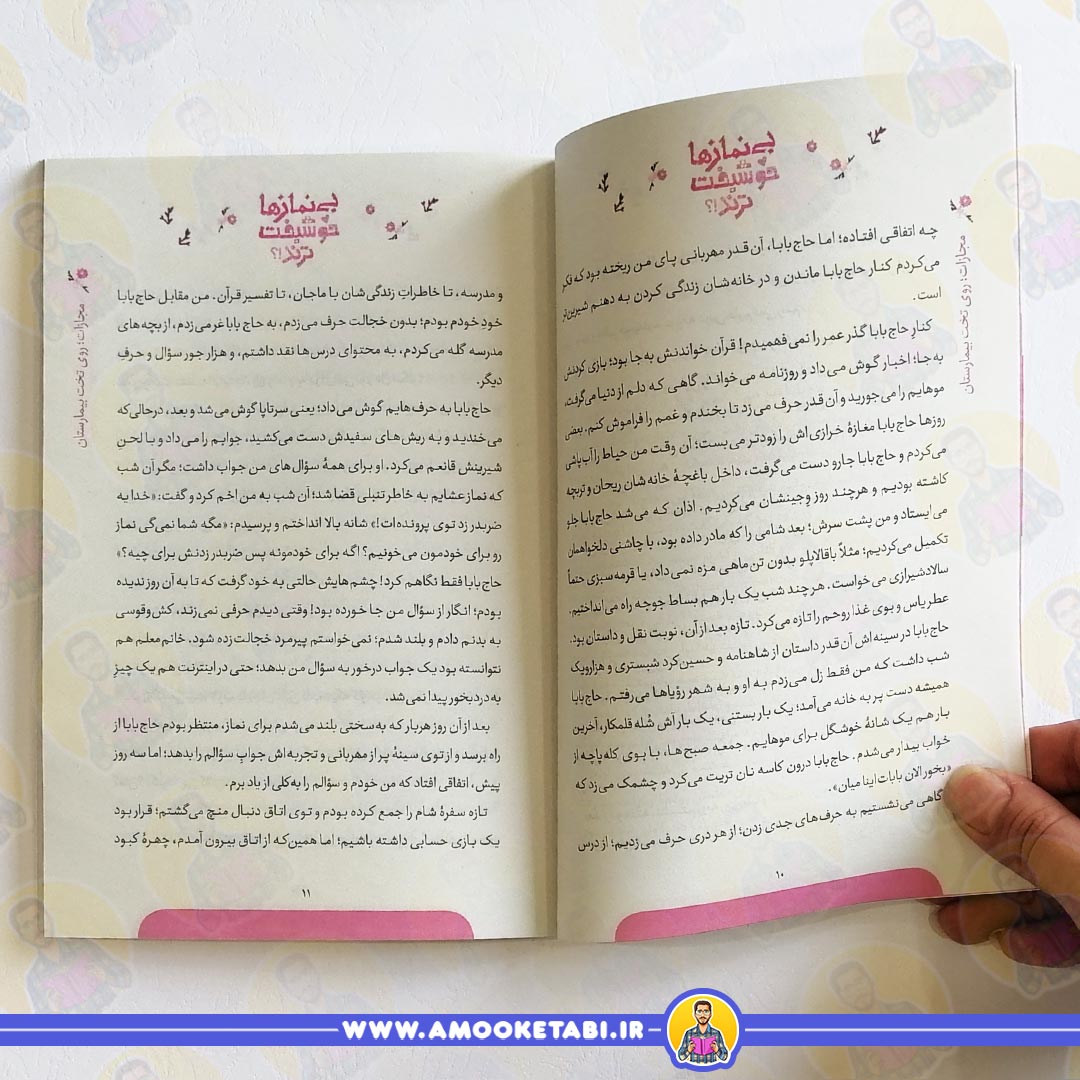 بی‌نمازها
خوشبخت
ترند!؟
مجازات؛ روی تخت بیمارستان
چه اتفاقی افتاده؛ اما حاج‌بابا، آن‌قدر مهربانی پای من ریخته بود که فکر
می‌کردم کنار حاج‌بابا ماندن و در خانه‌شان زندگی کردن به دهنم شیرین‌تر
است.
کنار حاج‌بابا گذر عمر را نمی‌فهمیدم! قرآن خواندنش به‌جا بود؛ بازی کردنش
به‌جا؛ اخبار گوش می‌داد و روزنامه می‌خواند. گاهی که دلم از دنیا می‌گرفت،
موهایم را می‌جورید و آن‌قدر حرف می‌زد تا بخندم و غمم را فراموش کنم. بعضی
روزها حاج‌بابا مغازهٔ خرازی‌اش را زودتر می‌بست؛ آن وقت من حیاط را آب‌پاشی
می‌کردم و حاج‌بابا جارو دست می‌گرفت، داخل باغچهٔ خانه‌شان ریحان و تربچه
کاشته بودیم و هرچند روز وجینشان می‌کردیم. اذان که می‌شد حاج‌بابا جلو
می‌ایستاد و من پشت سرش؛ بعد شامی را که مادر داده بود، با چاشنی دلخواهمان
تکمیل می‌کردیم؛ مثلاً باقالاپلو بدون تن ماهی مزه نمی‌داد، یا قرمه‌سبزی حتماً
سالادشیرازی می‌خواست. هرچند شب یک بار هم بساط جوجه راه می‌انداختیم.
عطر یاس و بوی غذا روحم را تازه می‌کرد. تازه بعد از آن، نوبت نقل و داستان بود.
حاج‌بابا در سینه‌اش آن‌قدر داستان از شاهنامه و حسین‌کرد شبستری و هزارویک
شب داشت که من فقط زل می‌زدم به او و به شهر رؤیاها می‌رفتم. حاج‌بابا
همیشه دست پر به خانه می‌آمد؛ یک بار بستنی، یک بار آش شُله قلمکار، آخرین
بار هم یک شانهٔ خوشگل برای موهایم. جمعه صبح‌ها، با بوی کله‌پاچه از
خواب بیدار می‌شدم. حاج‌بابا درون کاسه نان تریت می‌کرد و چشمک می‌زد که
«بخور الان بابات اینا میان».
گاهی می‌نشستیم به حرف‌های جدی زدن؛ از هر دری حرف می‌زدیم؛ از درس
۱۰
بی‌نمازها
خوشبخت
ترند!؟
مجازات؛ روی تخت بیمارستان
و مدرسه، تا خاطراتِ زندگی‌شان با ماجان، تا تفسیر قرآن. من مقابل حاج‌بابا
خودِ خودم بودم؛ بدون خجالت حرف می‌زدم، به حاج بابا غر می‌زدم، از بچه‌های
مدرسه گله می‌کردم، به محتوای درس‌ها نقد داشتم، و هزار جور سؤال و حرفِ
دیگر.
حاج‌بابا به حرف‌هایم گوش می‌داد؛ یعنی سرتاپا گوش می‌شد و بعد، درحالی‌که
می‌خندید و به ریش‌های سفیدش دست می‌کشید، جوابم را می‌داد و با لحنِ
شیرینش قانعم می‌کرد. او برای همهٔ سؤال‌های من جواب داشت؛ مگر آن شب
که نماز عشایم به خاطر تنبلی قضا شد؛ آن شب به من اخم کرد و گفت: «خدا یه
ضربدر زد توی پرونده‌ات!» شانه بالا انداختم و پرسیدم: «مگه شما نمی‌گی نماز
رو برای خودمون می‌خونیم؟ اگه برای خودمونه پس ضربدر زدنش برای چیه؟»
حاج‌بابا فقط نگاهم کرد! چشم‌هایش حالتی به خود گرفت که تا به آن روز ندیده
بودم؛ انگار از سؤال من جا خورده بود! وقتی دیدم حرفی نمی‌زند، کش‌وقوسی
به بدنم دادم و بلند شدم؛ نمی‌خواستم پیرمرد خجالت‌زده شود. خانم معلم هم
نتوانسته بود یک جواب درخور به سؤال من بدهد؛ حتی در اینترنت هم یک چیزِ
به‌دردبخور پیدا نمی‌شد.
بعد از آن روز هربار که به‌سختی بلند می‌شدم برای نماز، منتظر بودم حاج‌بابا از
راه برسد و از توی سینهٔ پر از مهربانی و تجربه‌اش جوابِ سؤالم را بدهد؛ اما سه روز
پیش، اتفاقی افتاد که من خودم و سؤالم را به‌کلی از یاد برم.
تازه سفرهٔ شام را جمع کرده بودم و توی اتاق دنبال منچ می‌گشتم؛ قرار بود
یک بازی حسابی داشته باشیم؛ اما همین‌که از اتاق بیرون آمدم، چهرهٔ کبود
۱۱
WWW.AMOOKETABI.IR